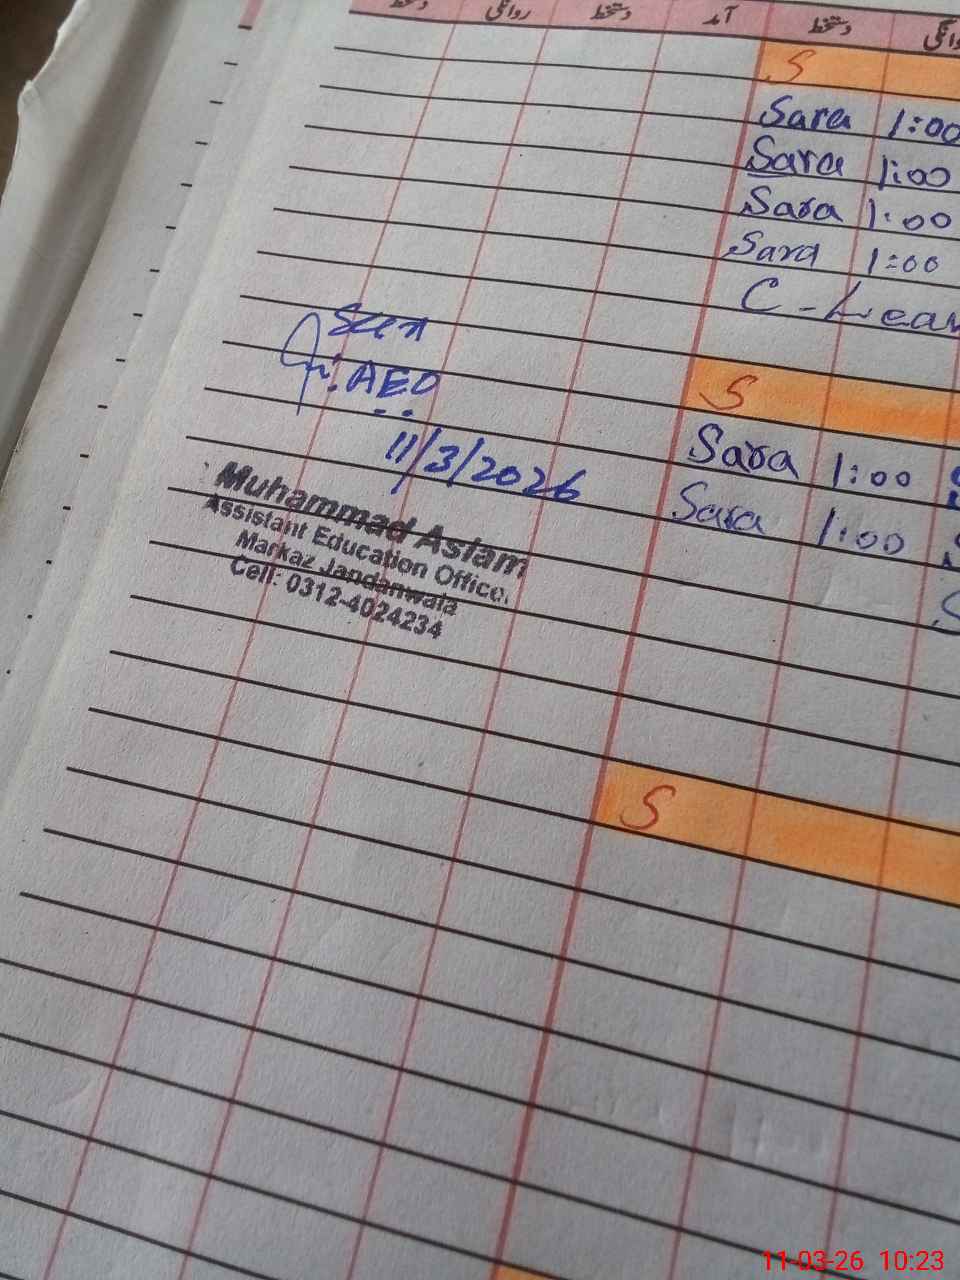 دستخط روانگی دستخط آمد دستخط روانگی
S
Sara 1:00
Sara 1:00
Sara 1:00
Sara 1:00
C-Leav
Seen
AEO
11/3/2026
Muhammad Aslam
Assistant Education Officer
Markaz Jandanwala
Cell: 0312-4024234
S
Sara 1:00
Sara 1:00
S
11-03-26 10:23